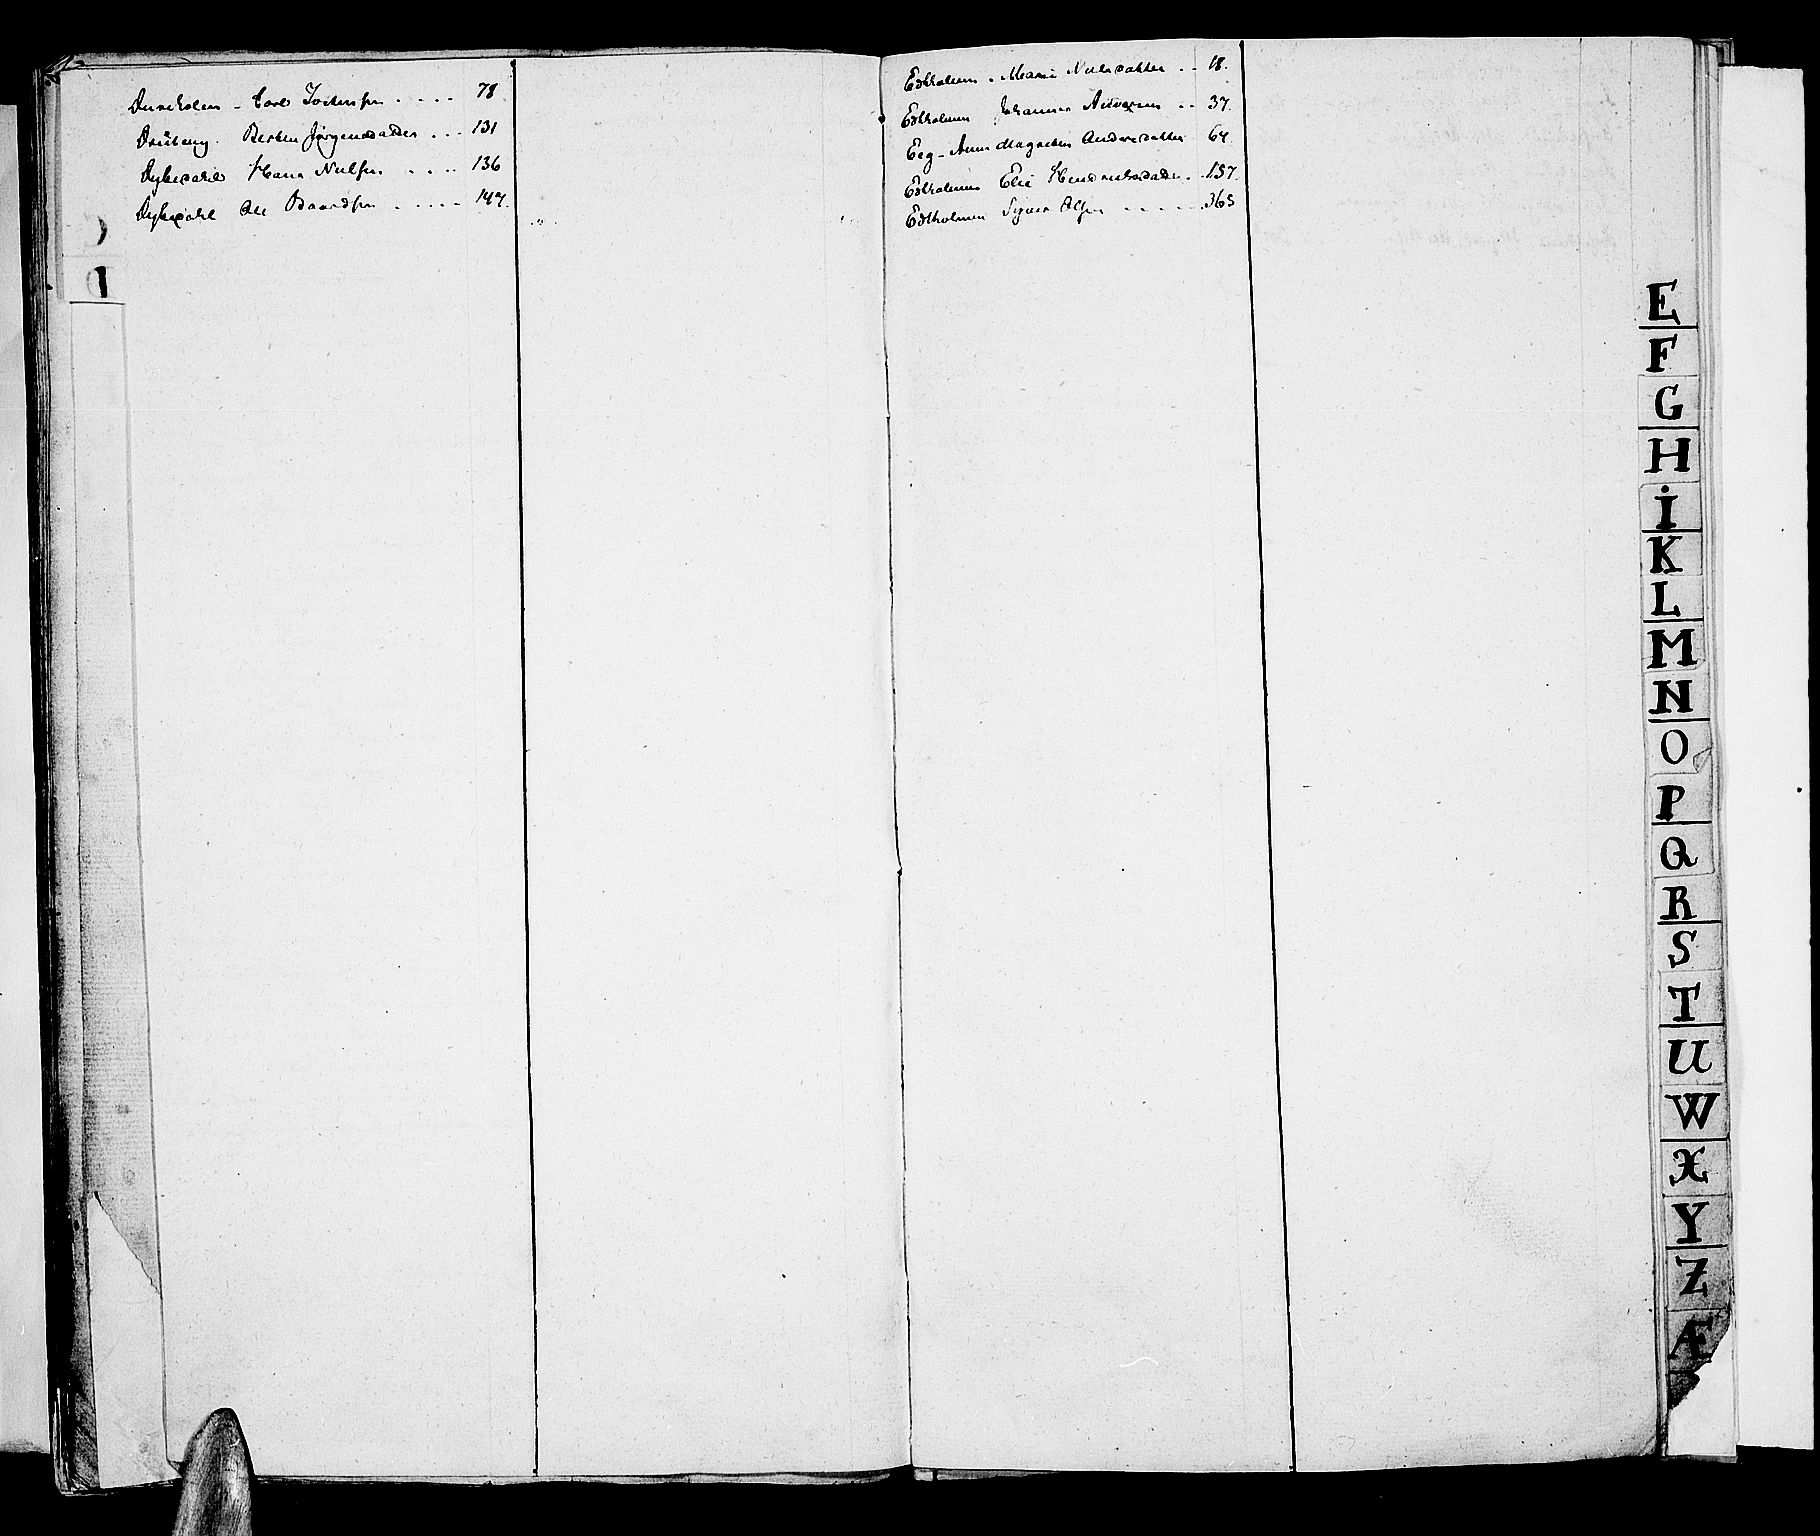 Duneholm - Carl Tostensen . . . . 78
Berthe Jørgensdatter . . . 131
Dybvahl Hans Nielsen . . . . 136
Dybvahl Ole Baardsen . . . . . 147.
D
Edtholmen . Marie Nielsdatter . . 18.
Edtholmen Johannes . . 37.
Eeg - Anne Magrethe Andersdatter 64.
Edtholmen Elie Hendrichsdatter . . 157.
Edtholmen Signer Olsen . . . . . 365
E
F
G
H
I
K
L
M
N
O
P
Q
R
S
T
U
W
X
Y
Z
Æ